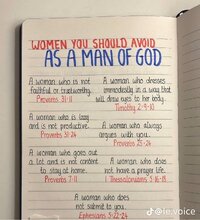 WOMEN YOU SHOULD AVOID
AS A MAN OF GOD
A woman who is not
faithful or trustworthy.
Proverbs 31-11
A woman who dresses
immodestly in a way that
will draw eyes to her body.
Timothy 2:9-10
A woman who is lazy
and is not productive.
Proverbs 31-24
A woman who always
argues with you.
Proverbs 25-24
A woman who goes out
a lot and is not content
to stay at home.
Proverbs 7-11
A woman who does
not have a prayer life.
1 Thessalonians 5:16-18
A woman who does
not submit to you.
Ephesians 5:22-24
@ie.voice